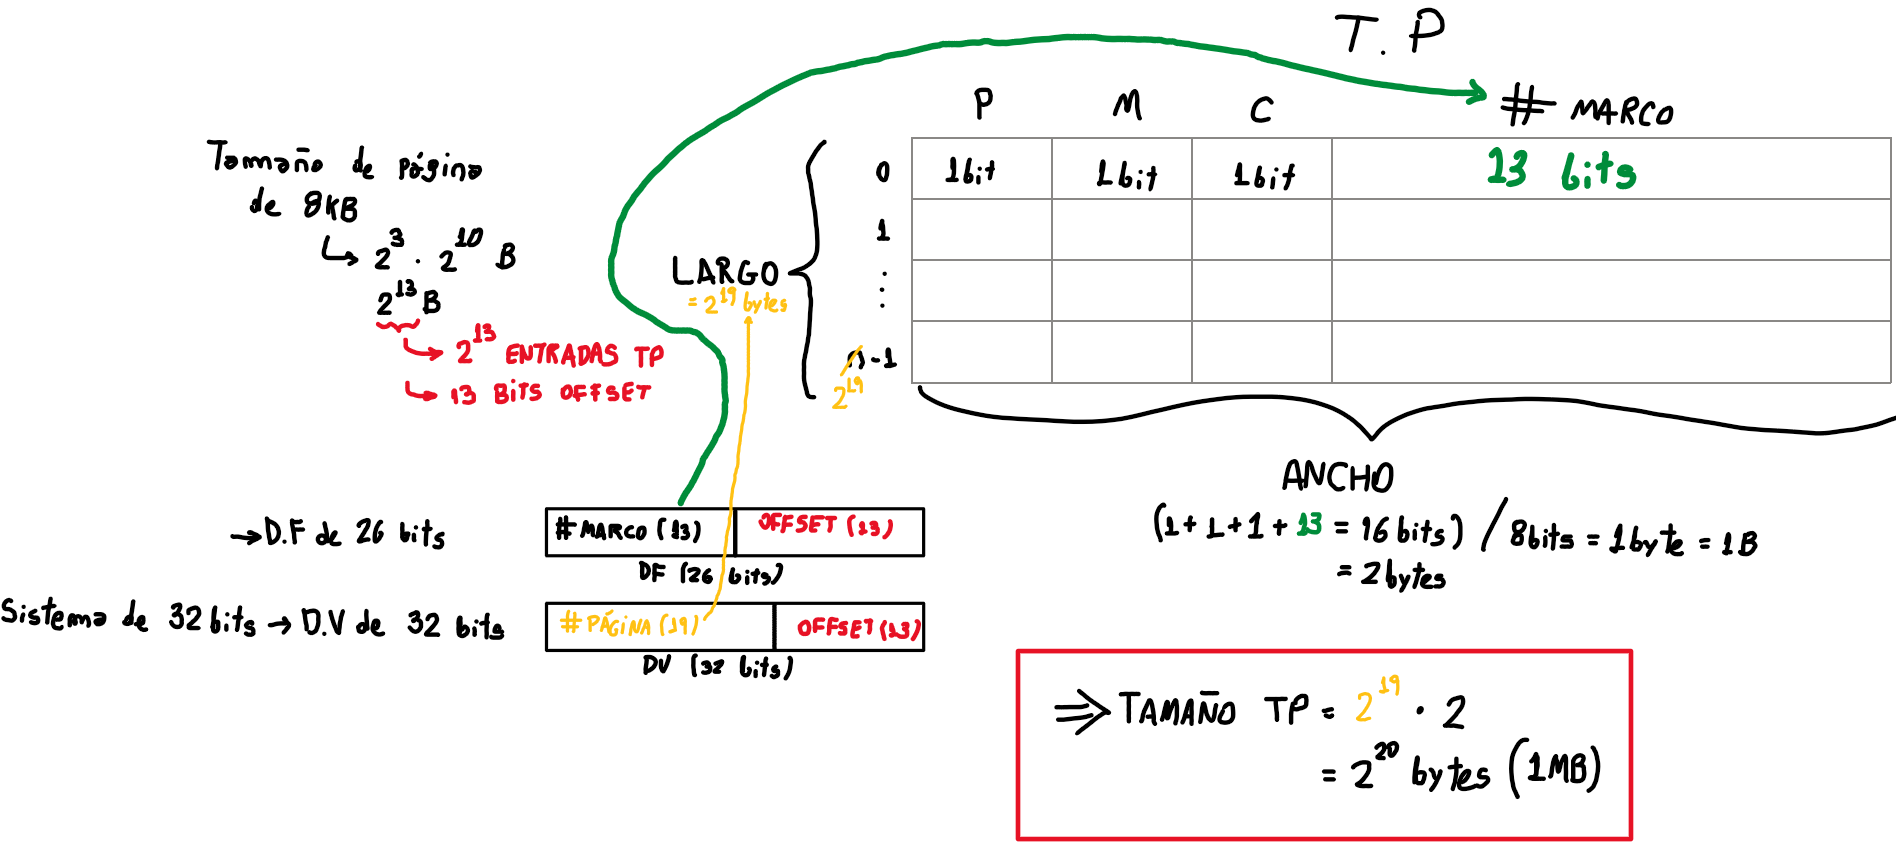 T.P
P M C # MARCO
Tamaño de página
de 8KB
2^3 . 2^10 B
2^13 B
2^13 ENTRADAS TP
13 BITS OFFSET
LARGO
= 2^19 bytes
0 1bit 1bit 1bit 13 bits
1
⋮
n-1
2^19
ANCHO
(1+1+1+13 = 16bits) / 8bits = 1byte = 1B
= 2bytes
→ D.F de 26 bits
#MARCO (13) OFFSET (13)
DF (26 bits)
Sistema de 32bits → D.V de 32 bits
#PÁGINA (19) OFFSET (13)
DV (32 bits)
⇒ TAMAÑO TP = 2^19 · 2
= 2^20 bytes (1MB)